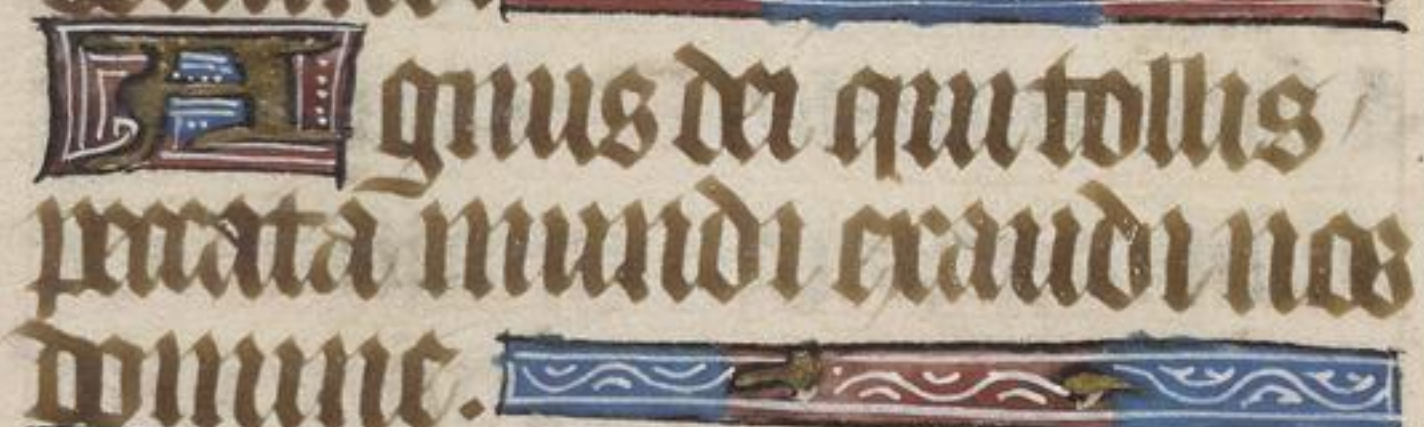 Agnus dei qui tollis
peccata mundi exaudi nos
domine.